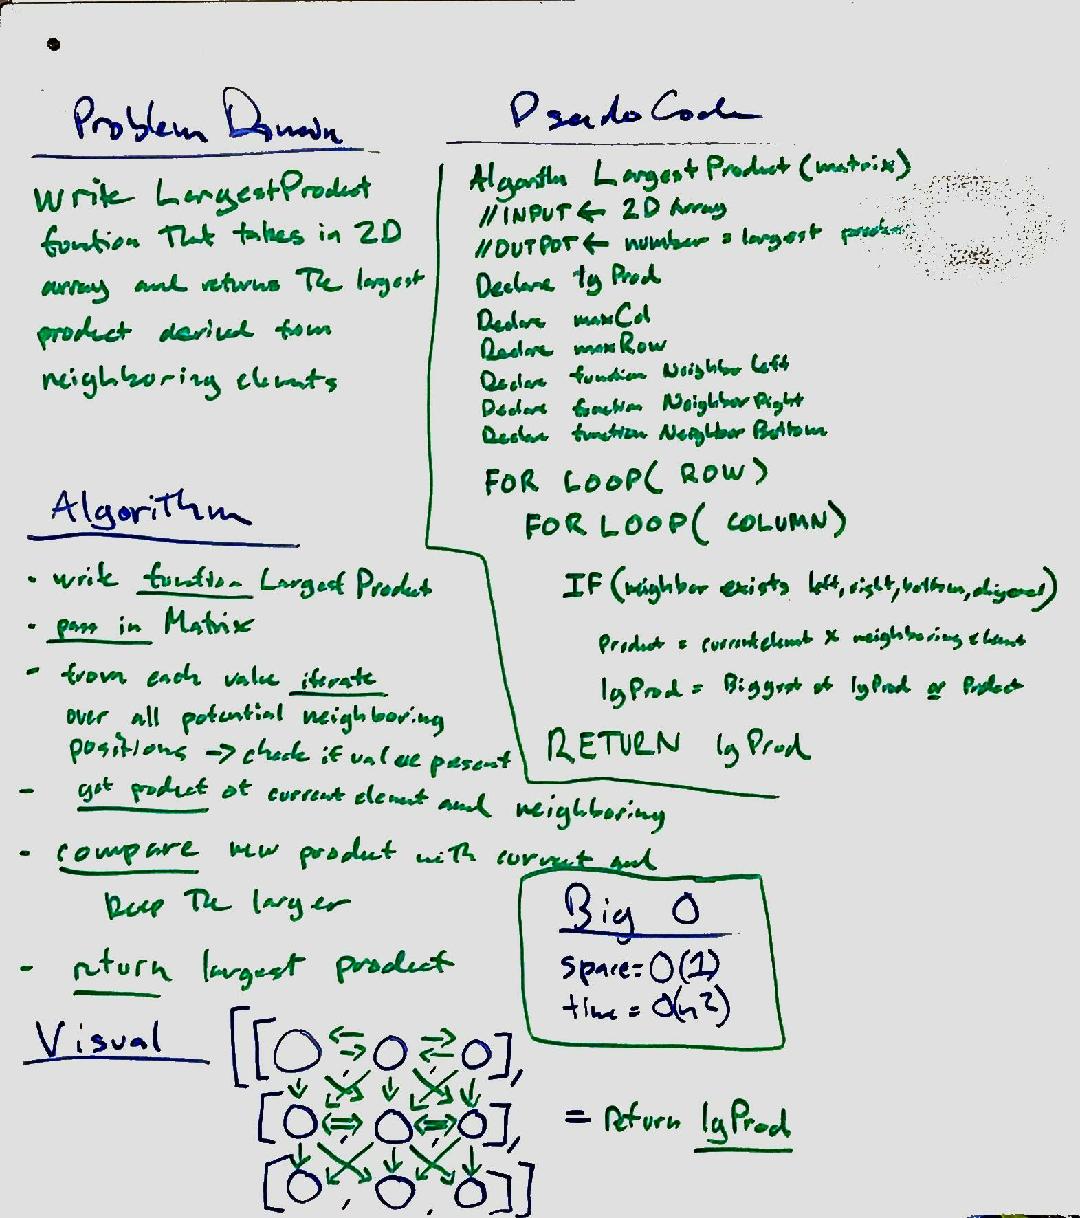 Problem Domain
Write LargestProduct
function That takes in 2D
array and returns The largest
product derived from
neighboring elements
Algorithm
• write function Largest Product
• pass in Matrix
- from each value iterate
over all potential neighboring
positions → check if value present
- get product of current element and neighboring
- compare new product with current and
keep The larger
- return largest product
Visual
[[O ⇄ O ⇄ O],
[O ⇔ O ⇔ O],
[O , O , O]]
= return lgProd
Psedo Code
Algorithm LargestProduct (matrix)
// INPUT ← 2D Array
// OUTPUT ← number = largest product
Declare lgProd
Declare maxCol
Declare maxRow
Declare function Neighbor Left
Declare function NeighborRight
Declare function Neighbor Bottom
FOR LOOP( ROW)
FOR LOOP( COLUMN)
IF (neighbor exists left, right, bottom, diagonal)
Product = current element x neighboring element
lgProd = Biggest of lgProd or Product
RETURN lgProd
Big O
space = O(1)
time = O(n2)